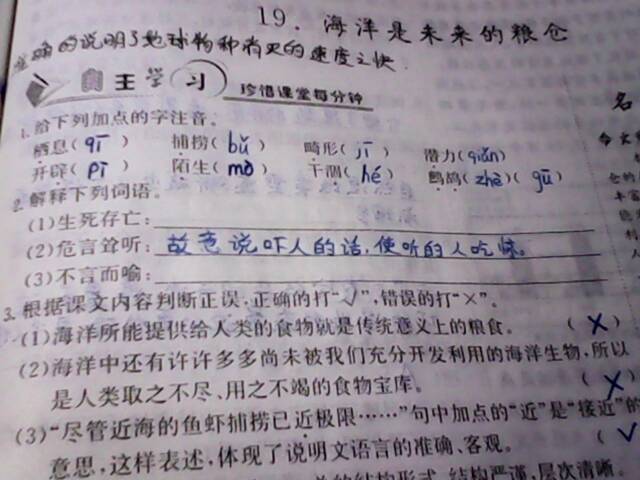 19. 海洋是未来的粮仓
准确的说明了地球物种消灭的速度之快.
自主学习 珍惜课堂每分钟
名
1. 给下列加点的字注音。
栖息(qī) 捕捞(bǔ) 畸形(jī) 潜力(qián)
开辟(pì) 陌生(mò) 干涸(hé) 鹧鸪(zhè)(gū)
2. 解释下列词语。
(1)生死存亡:
(2)危言耸听: 故意说吓人的话,使听的人吃惊。
(3)不言而喻:
3. 根据课文内容判断正误,正确的打“√”,错误的打“×”。
(1)海洋所能提供给人类的食物就是传统意义上的粮食。 (X)
(2)海洋中还有许许多多尚未被我们充分开发利用的海洋生物,所以
是人类取之不尽、用之不竭的食物宝库。 (X)
(3)“尽管近海的鱼虾捕捞已近极限……”句中加点的“近”是“接近”的
意思,这样表述,体现了说明文语言的准确、客观。 (√
的结构形式,结构严谨,层次清晰。